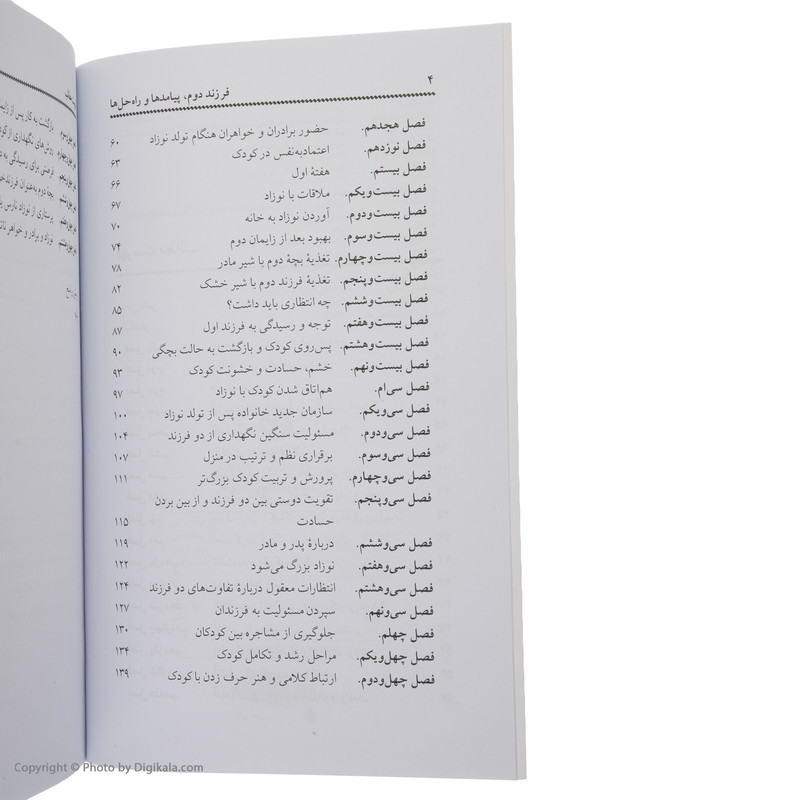 ۴
فرزند دوم، پیامدها و راه‌حل‌ها
فصل هجدهم. حضور برادران و خواهران هنگام تولد نوزاد ۶۰
فصل نوزدهم. اعتمادبه‌نفس در کودک ۶۳
فصل بیستم. هفتهٔ اول ۶۶
فصل بیست‌ویکم. ملاقات با نوزاد ۶۷
فصل بیست‌ودوم. آوردن نوزاد به خانه ۷۰
فصل بیست‌وسوم. بهبود بعد از زایمان دوم ۷۴
فصل بیست‌وچهارم. تغذیهٔ بچهٔ دوم با شیر مادر ۷۸
فصل بیست‌وپنجم. تغذیهٔ فرزند دوم با شیر خشک ۸۲
فصل بیست‌وششم. چه انتظاری باید داشت؟ ۸۵
فصل بیست‌وهفتم. توجه و رسیدگی به فرزند اول ۸۷
فصل بیست‌وهشتم. پس‌روی کودک و بازگشت به حالت بچگی ۹۰
فصل بیست‌ونهم. خشم، حسادت و خشونت کودک ۹۳
فصل سی‌ام. هم‌اتاق شدن کودک با نوزاد ۹۷
فصل سی‌ویکم. سازمان جدید خانواده پس از تولد نوزاد ۱۰۰
فصل سی‌ودوم. مسئولیت سنگین نگهداری از دو فرزند ۱۰۴
فصل سی‌وسوم. برقراری نظم و ترتیب در منزل ۱۰۷
فصل سی‌وچهارم. پرورش و تربیت کودک بزرگ‌تر ۱۱۱
فصل سی‌وپنجم. تقویت دوستی بین دو فرزند و از بین بردن
حسادت ۱۱۵
فصل سی‌وششم. دربارهٔ پدر و مادر ۱۱۹
فصل سی‌وهفتم. نوزاد بزرگ می‌شود ۱۲۲
فصل سی‌وهشتم. انتظارات معقول دربارهٔ تفاوت‌های دو فرزند ۱۲۴
فصل سی‌ونهم. سپردن مسئولیت به فرزندان ۱۲۷
فصل چهلم. جلوگیری از مشاجره بین کودکان ۱۳۰
فصل چهل‌ویکم. مراحل رشد و تکامل کودک ۱۳۴
فصل چهل‌ودوم. ارتباط کلامی و هنر حرف زدن با کودک ۱۳۹
بازگشت به کار پس از زایما
روش‌های نگهداری از کو
فرصتی برای رسیدگی به
بچهٔ دوم به‌عنوان فرزندخو
پرستاری از نوزاد نارس
نوزاد و برادر و خواهر
Copyright © Photo by Digikala.com